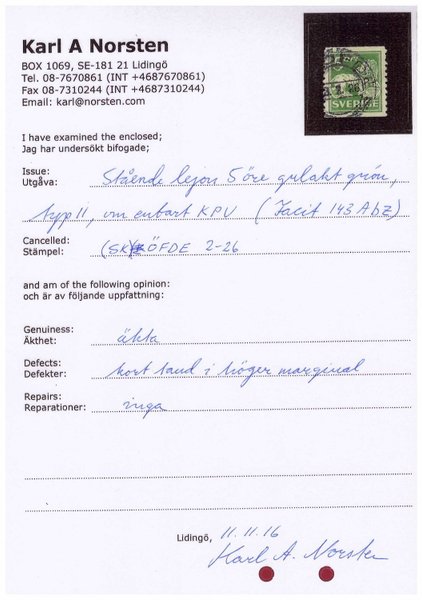 Karl A Norsten
BOX 1069, SE-181 21 Lidingö
Tel. 08-7670861 (INT +4687670861)
Fax 08-7310244 (INT +4687310244)
Email: karl@norsten.com
SVERIGE
I have examined the enclosed;
Jag har undersökt bifogade;
Issue:
Utgåva: Stående lejon 5 öre gulakt grön,
typ II, vm enbart KPV (Facit 143Abz)
Cancelled:
Stämpel: (SKÖFDE 2-26
and am of the following opinion:
och är av följande uppfattning:
Genuiness:
Äkthet: äkta
Defects:
Defekter: kort tand i höger marginal
Repairs:
Reparationer: inga
Lidingö, 11.11.16
Karl A. Norsten